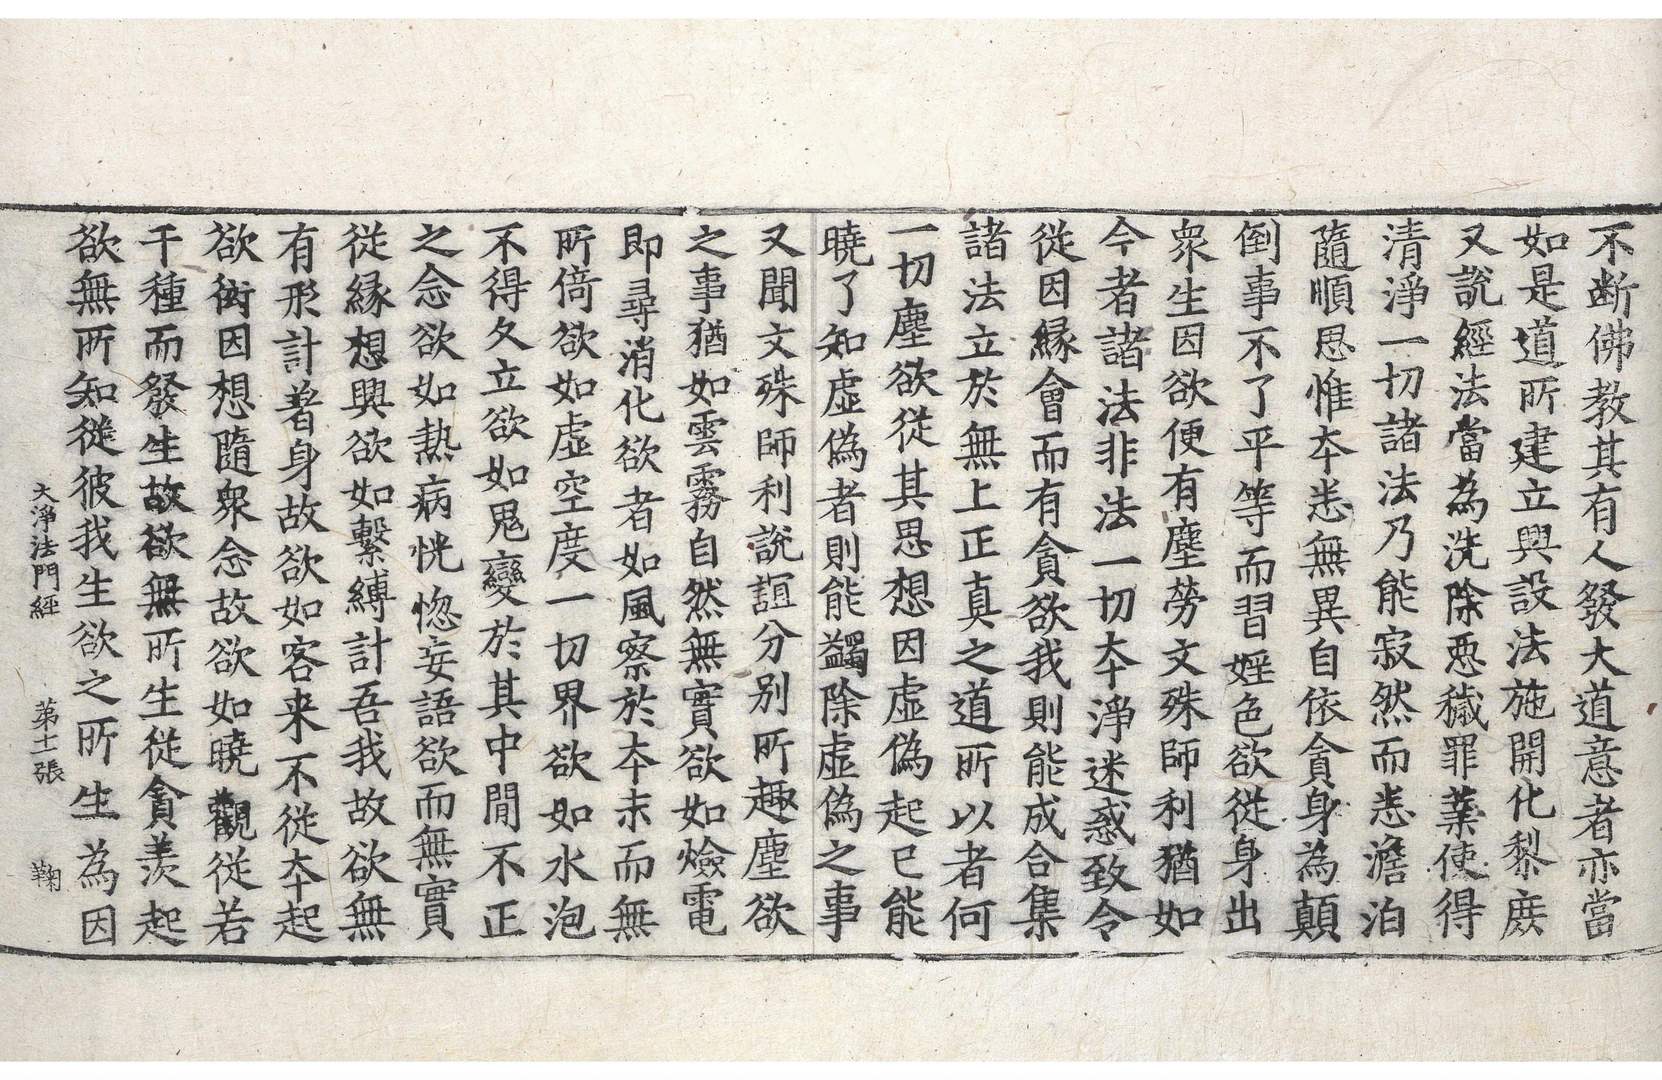 不断佛教其有人發大道意者亦當
如是道所建立興設法施開化黎庶
又說經法當為洗除惡穢罪業使得
清淨一切諸法乃能寂然而恙澹泊
隨順思惟夲恙無異自依貪身為顛
倒事不了平等而習婬色欲從身出
衆生因欲便有塵勞文殊師利猶如
今者諸法非法一切夲淨迷惑致令
從因緣會而有貪欲我則能成合集
諸法立於無上正真之道所以者何
一切塵欲從其思想因虛偽起已能
曉了知虛偽者則能蠲除虛偽之事
又聞文殊師利說誼分別所趣塵欲
之事猶如雲霧自然無實欲如爓電
即尋消化欲者如風察於夲末而無
所倚欲如虛空度一切界欲如水泡
不得久立欲如鬼變於其中間不正
之念欲如熱病恍惚妄語欲而無實
從緣想興欲如繫縛計吾我故欲無
有形計著身故欲如客来不從夲起
欲㣔因想隨衆念故欲如曉觀從若
干種而發生故欲無所生從貪羨起
欲無所知從彼我生欲之所生為因
大淨法門經　第十一張　鞠